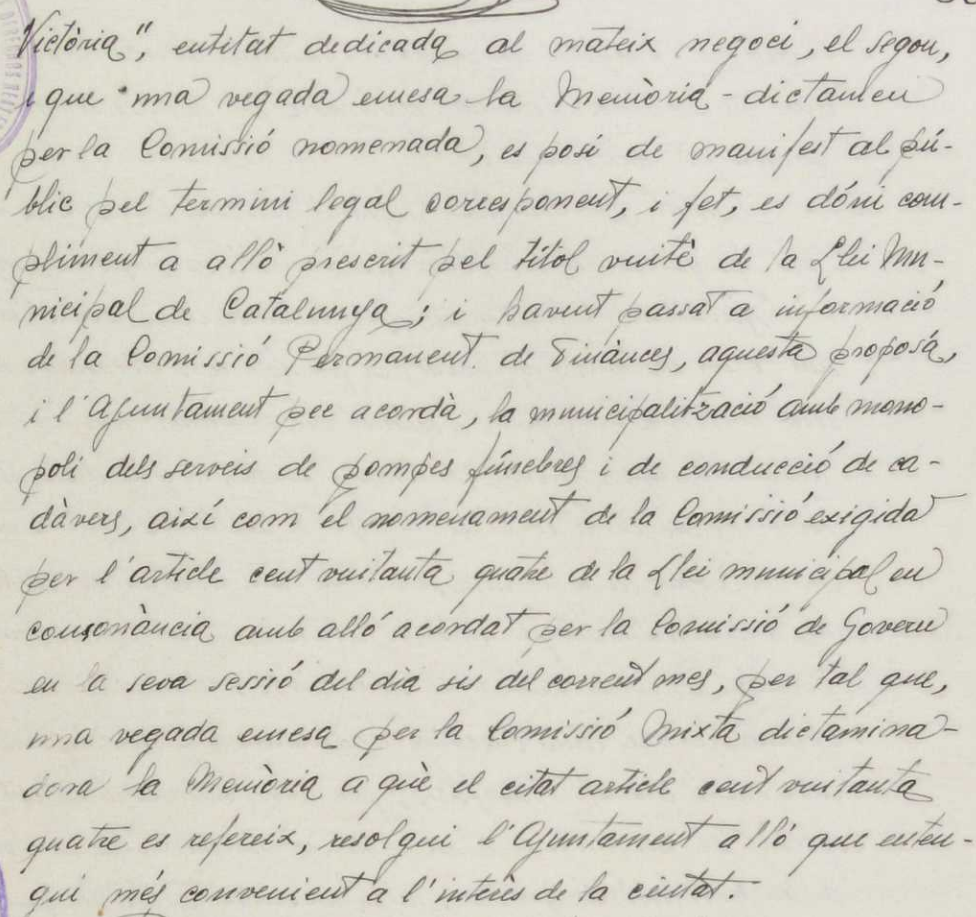 Victòria", entitat dedicada al mateix negoci, el segon,
i que una vegada emesa la Memòria - dictamen
per la Comissió nomenada, es posi de manifest al pú-
blic pel termini legal corresponent, i fet, es dóni com-
pliment a allò prescrit pel títol vuitè de la Llei Mu-
nicipal de Catalunya; i havent passat a informació
de la Comissió Permanent de Finànces, aquesta proposà,
i l'Ajuntament per acordà, la municipalització amb mono-
poli dels serveis de pompes fúnebres i de conducció de ca-
dàvers, així com el nomenament de la Comissió exigida
per l'article cent vuitanta quatre de la Llei municipal en
consonància amb allò acordat per la Comissió de Govern
en la seva sessió del dia sis del corrent mes, per tal que,
una vegada emesa per la Comissió Mixta dictamina-
dora la Memòria a què el citat article cent vuitanta
quatre es refereix, resolgui l'Ajuntament allò que enten-
gui més convenient a l'interès de la ciutat.